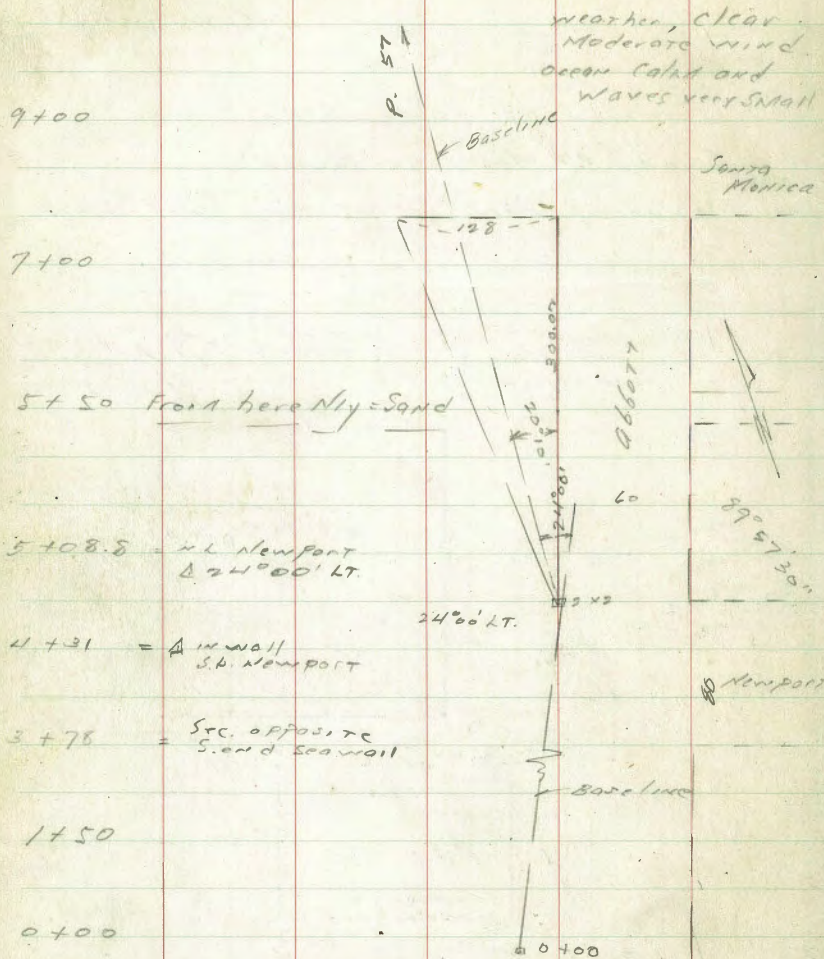 weather, clear.
Moderate wind
ocean Calm and
waves very small
P. 57
9+00
Baseline
Santa
Monica
128
7+00
300.02
abbott
5+50 From here Nly = Sand
24°00'
60
89°57'30"
5+08.8 = N.L. Newport
Δ 24°00' LT.
2x2
24°00' LT.
4+31 = Δ in wall
S.L. Newport
80 Newport
3+78 = Stc. opposite
S. end seawall
Baseline
1+50
0+00
0+00